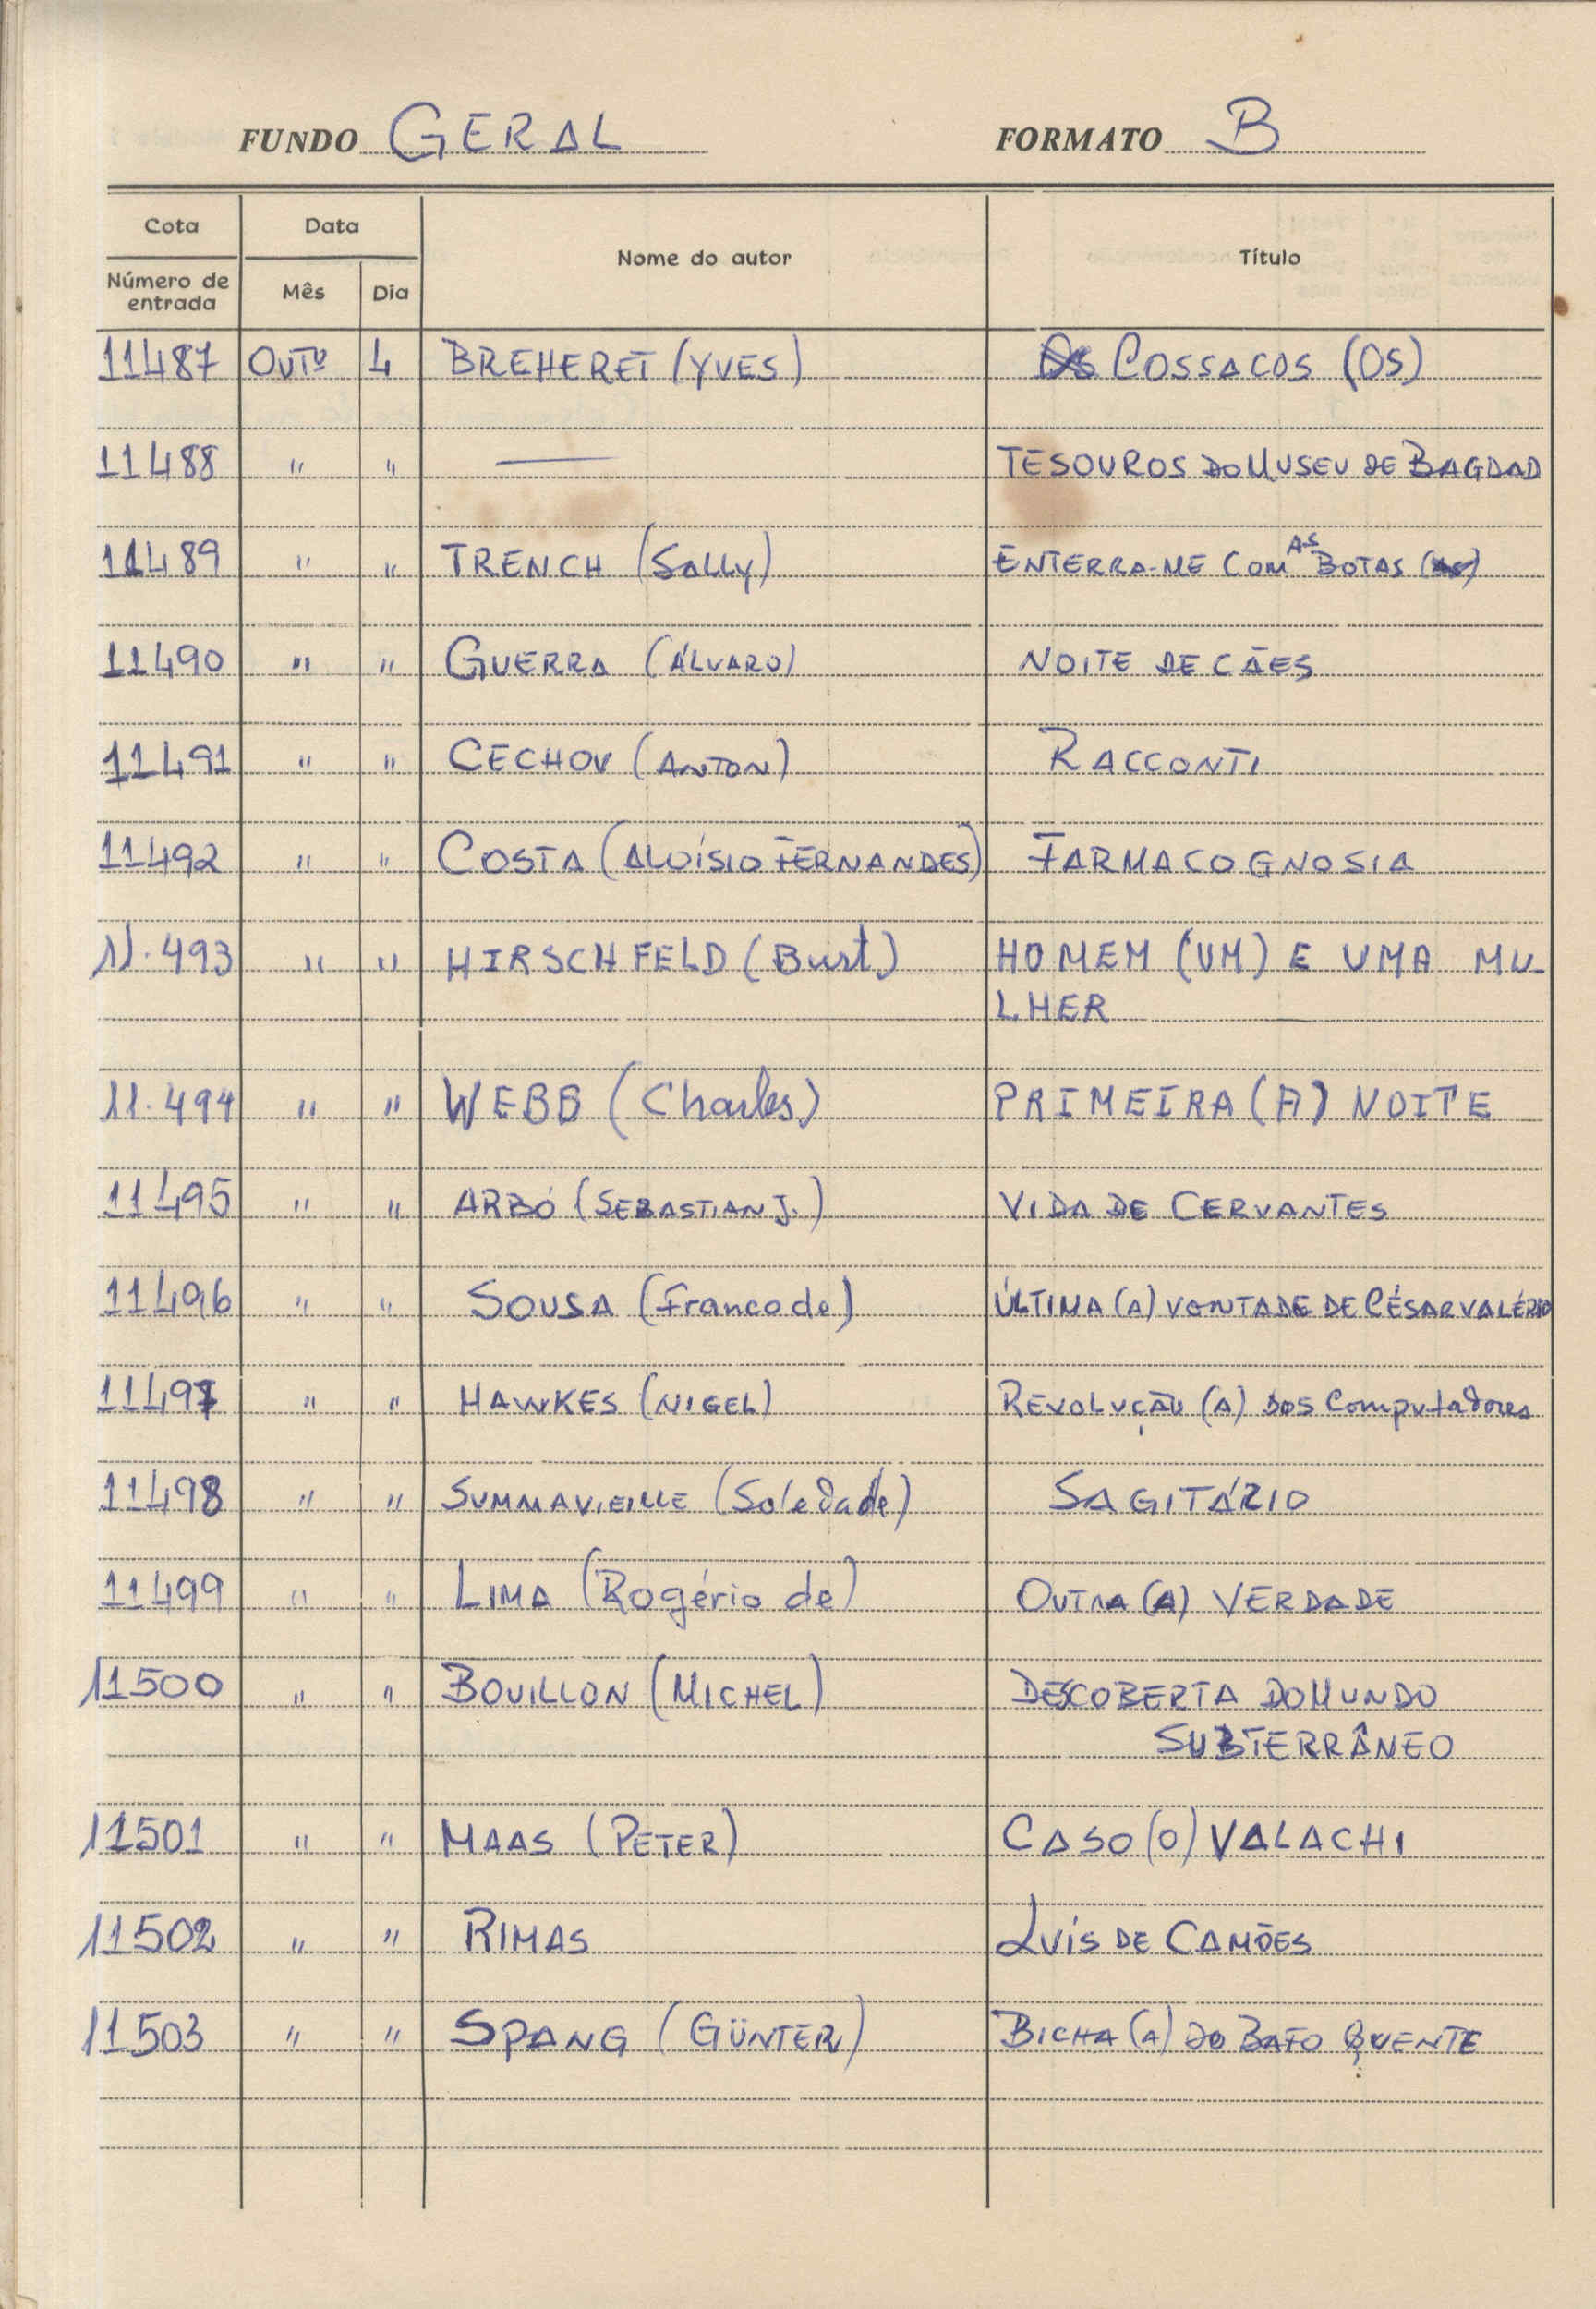 FUNDO GERAL FORMATO B
Cota Data Nome do autor Título
Número de entrada Mês Dia
11487 OUTº 4 BREHERET (YVES) COSSACOS (OS)
11488 " " — TESOUROS DO MUSEU DE BAGDAD
11489 " " TRENCH (Sally) ENTERRA-ME COM AS BOTAS
11490 " " GUERRA (ÁLVARO) NOITE DE CÃES
11491 " " CECHOV (ANTON) RACCONTI
11492 " " COSTA (ALOÍSIO FERNANDES) FARMACOGNOSIA
11.493 " " HIRSCHFELD (Burt) HOMEM (UM) E UMA MU-
LHER
11.494 " " WEBB (Charles) PRIMEIRA (A) NOITE
11495 " " ARBÓ (SEBASTIAN J.) VIDA DE CERVANTES
11496 " " SOUSA (Franco de) ÚLTIMA (A) VONTADE DE CÉSAR VALÉRIO
11497 " " HAWKES (NIGEL) REVOLUÇÃO (A) DOS Computadores
11498 " " SUMMAVIEILLE (Soledade) SAGITÁRIO
11499 " " LIMA (Rogério de) OUTRA (A) VERDADE
11500 " " BOUILLON (MICHEL) DESCOBERTA DO MUNDO
SUBTERRÂNEO
11501 " " MAAS (PETER) CASO (O) VALACHI
11502 " " RIMAS LUÍS DE CAMÕES
11503 " " SPANG (GÜNTER) BICHA (A) DO BAFO QUENTE